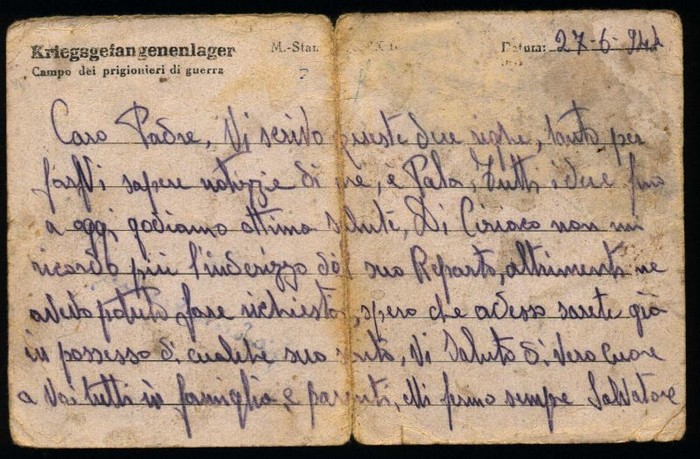 Kriegsgefangenenlager M.-Stam. Datum: 27-6-944
Campo dei prigionieri di guerra
Caro Padre, Vi scrivo queste due righe, tanto per
farVi sapere notizzie di me, e Pala, Tutti i due fino
a oggi godiamo ottima salute, Di Ciriaco non mi
ricordo più l'inderizzo del suo Reparto, altrimenti ne
avevo potuto fare richiesta, spero che adesso sarete già
in possesso di cualche suo scritto, Vi Saluto di vero cuore
a Voi tutti in famiglia, e parenti, Mi firmo sempre Salvatore